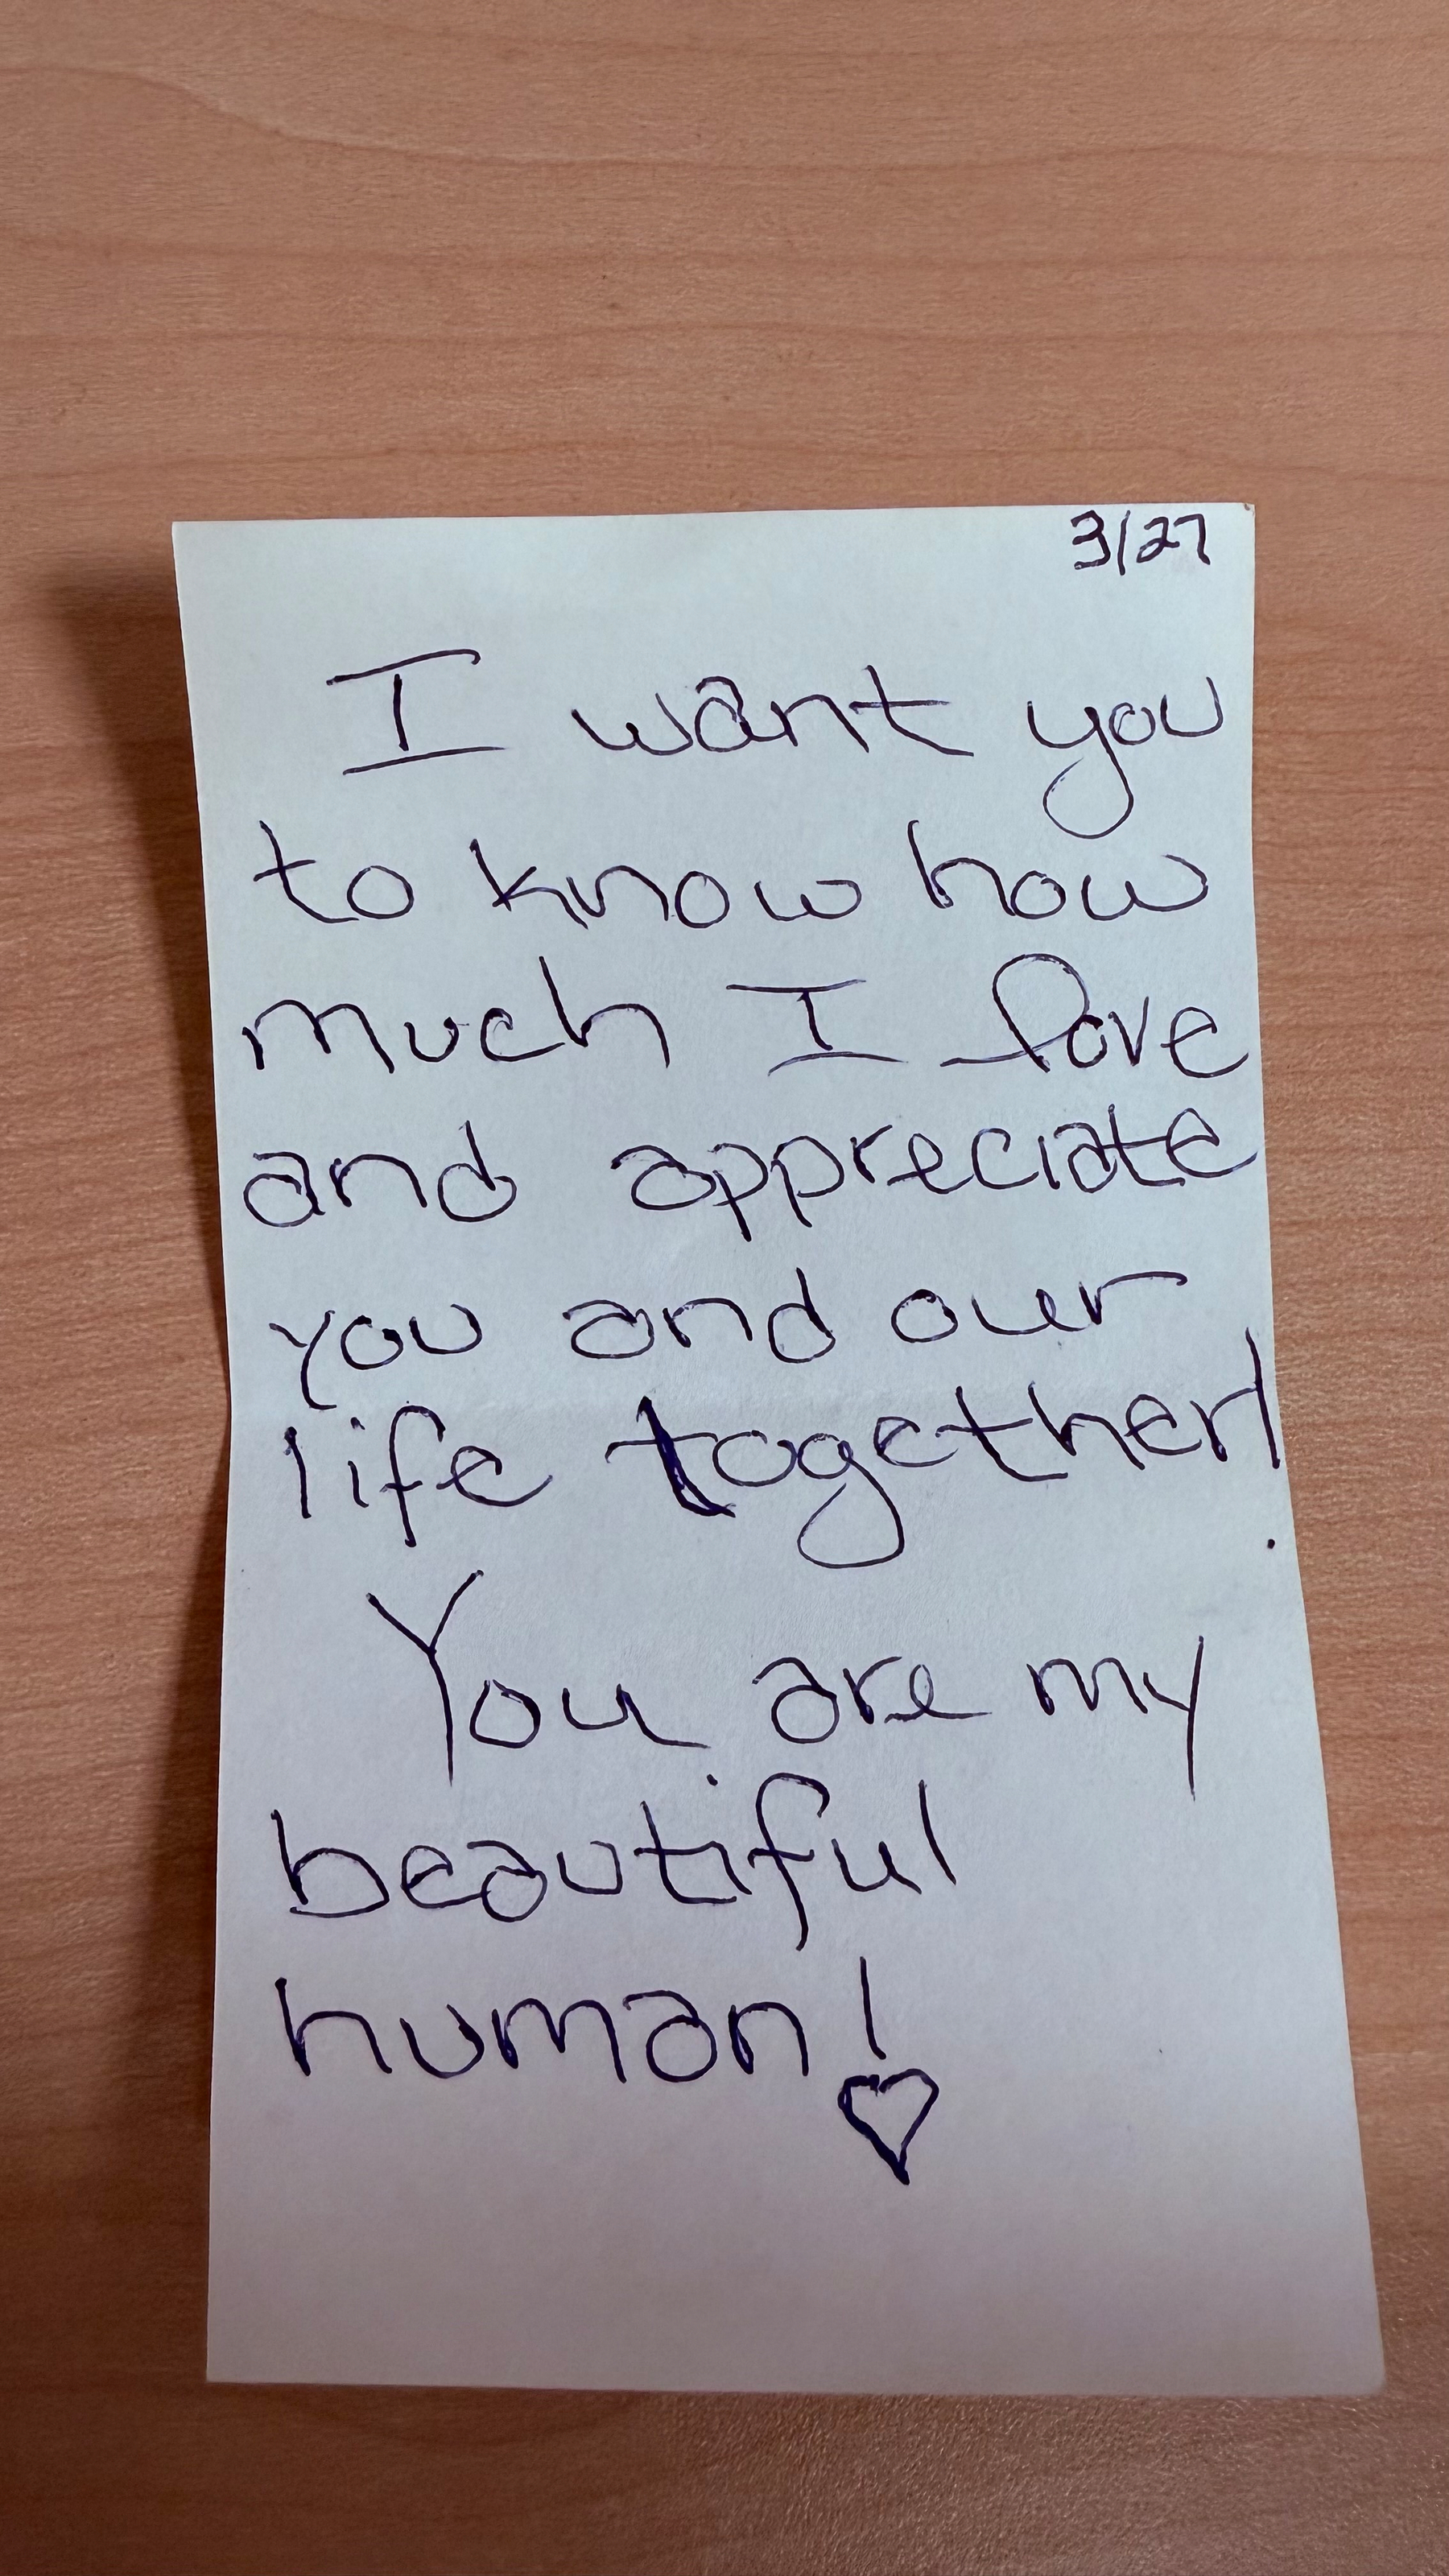 3/27
I want you
to know how
much I love
and appreciate
you and our
life together!
You are my
beautiful
human! ♡